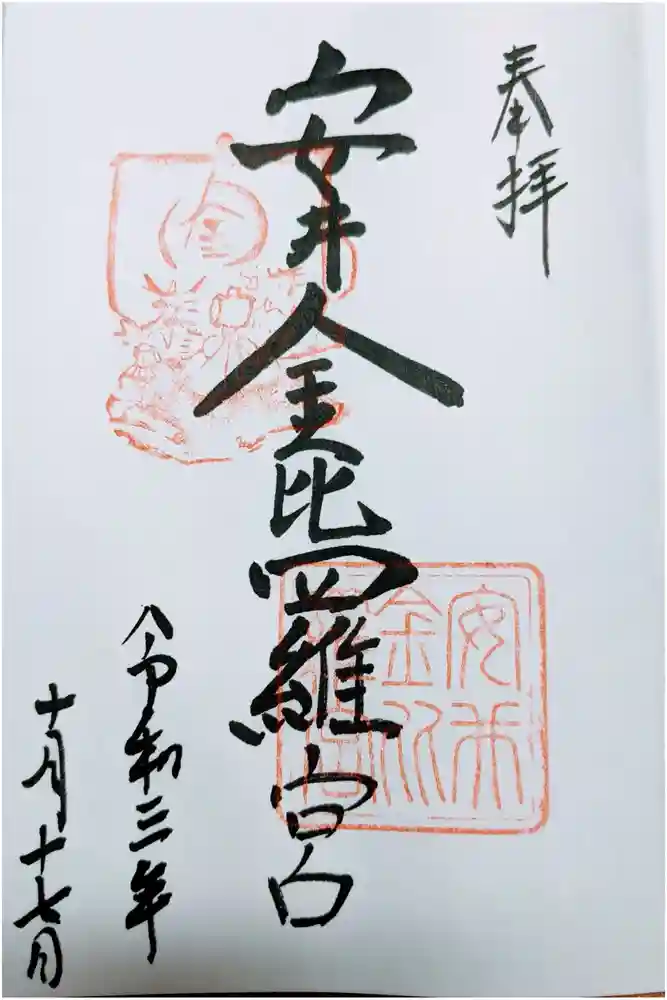 奉拝
安井金比羅宮
令和三年
十月十七日